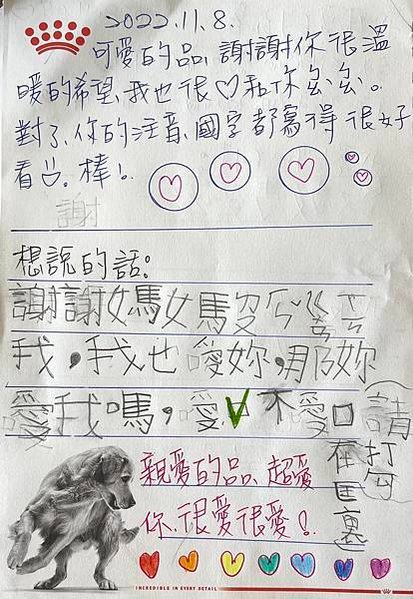 2022.11.8.
可愛的品,謝謝你很溫
暖的希望,我也很♡和你ㄠㄠ。
對了,你的注音、國字都寫得很好
看。棒!
謝
想說的話:
謝謝媽媽
我,我也愛妳,那妳
愛我嗎,愛☑不愛□
請打勾
在匡裏
親愛的品、超愛
你、很愛很愛!
INCREDIBLE IN EVERY DETAIL